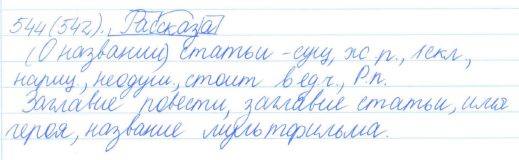 544(542). Рассказа
(О названии) статьи - сущ, ж. р., 1скл,
нариц, неодуш, стоит в ед.ч., Р.п.
Заглавие повести, заглавие статьи, имя
героя, название мультфильма.